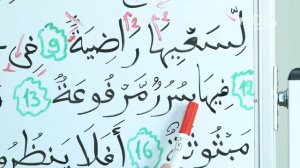 لِّسَعْيِهَا رَاضِيَةٌ 9 فِى
12 فِيهَا سُرُرٌ مَّرْفُوعَةٌ 13
مَبْثُوثَةٌ 16 أَفَلَا يَنظُرُو